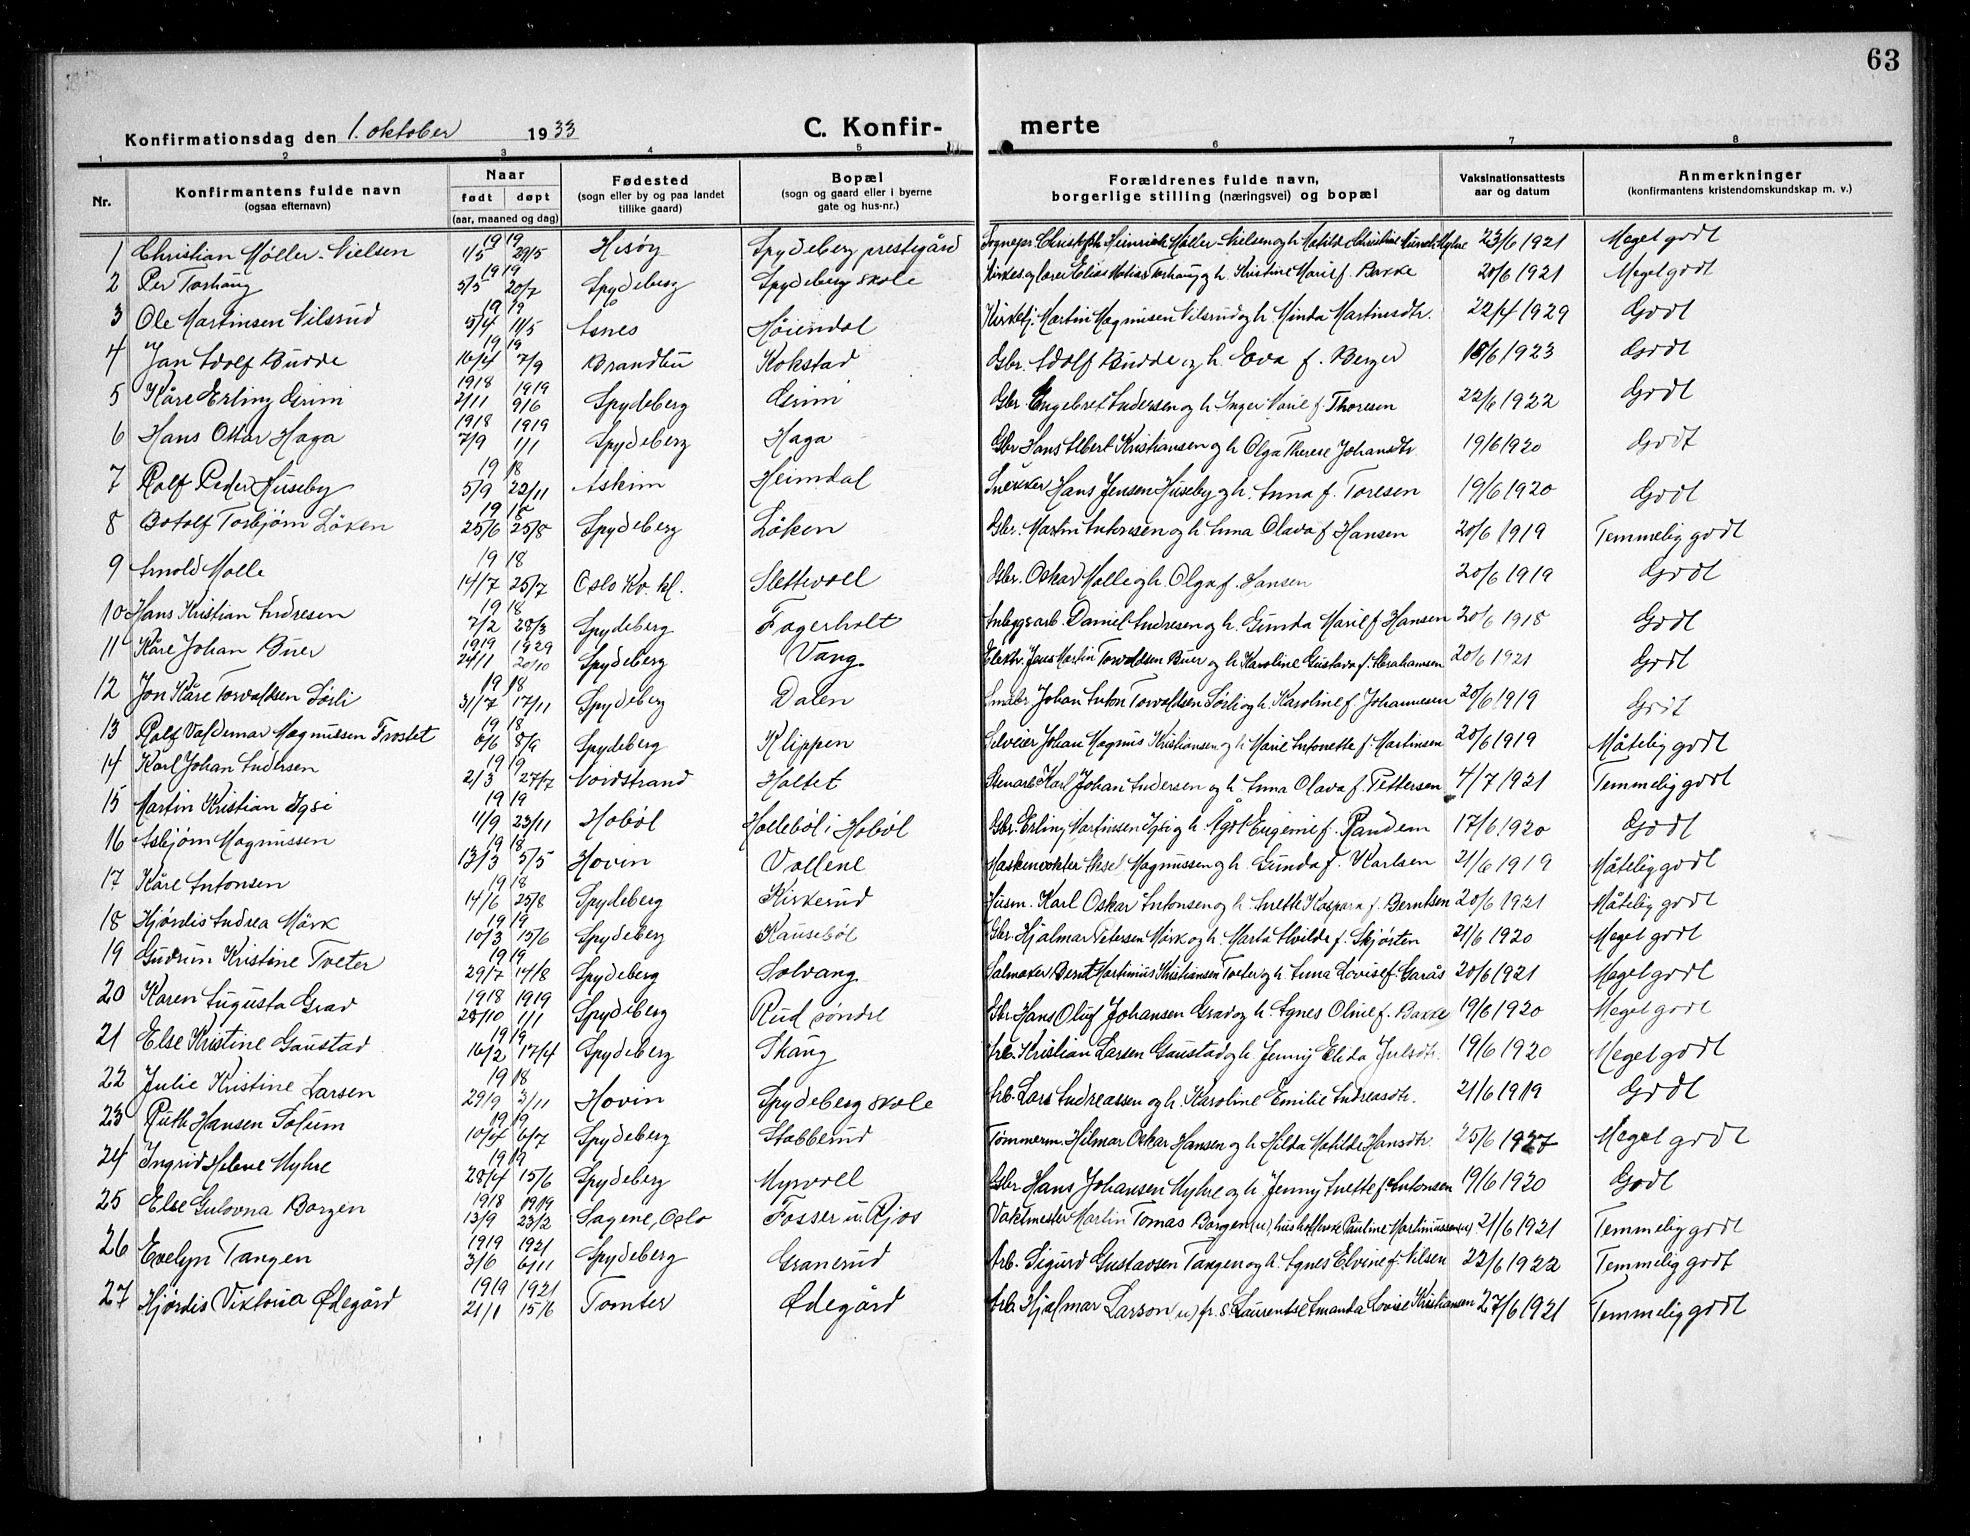 63
Konfirmationsdag den 1. oktober 1933 C. Konfir- merte
1 2 3 4 5 6 7 8
Nr. Konfirmantens fulde navn (ogsaa efternavn) Naar født døpt (aar, maaned og dag) Fødested (sogn eller by og paa landet tillike gaard) Bopæl (sogn og gaard eller i byerne gate og hus-nr.) Forældrenes fulde navn, borgerlige stilling (næringsvei) og bopæl Vaksinationsattests aar og datum Anmerkninger (konfirmantens kristendomskundskap m. v.)
1 Christian Møller-Nielsen 1919 1/5 29/5 Hisøy Spydeberg prestegård Sognepr. Christoph Heinrich Møller-Nielsen og h. Matilde Christine Munch Myhre 23/6 1921 Meget godt
2 Per Torhaug 1919 5/5 20/7 Spydeberg Spydeberg skole Kirkes. og lærer Elias Matias Torhaug og h. Kristine Marie f. Bakke 20/6 1921 Meget godt
3 Ole Martinsen Nilsrud 1919 5/4 11/5 Åsnes Høiendal Kirketj. Martin Magnusen Nilsrud og h. Minda Martinsdtr. 22/4 1929 Godt
4 Jan Adolf Budde 1919 16/4 7/9 Brandbu Kokstad Gbr. Adolf Budde og h. Eva f. Berger 18/6 1923 Godt
5 Kåre Erling Grini 1918 2/11 1919 9/6 Spydeberg Grini Gbr. Engebret Andersen og h. Inger Marie f. Thoresen 22/6 1922 Godt
6 Hans Ottar Haga 1918 7/9 1919 1/1 Spydeberg Haga Gbr. Hans Albert Kristiansen og h. Olga Therese Johansdtr. 19/6 1920 Godt
7 Rolf Peder Huseby 1918 5/9 22/11 Askim Heimdal Snekker Hans Jensen Huseby og h. Anna f. Toresen 19/6 1920 Godt
8 Botolf Torbjørn Løken 1918 25/6 25/8 Spydeberg Løken Gbr. Martin Antonsen og h. Anna Olava f. Hansen 20/6 1919 Temmelig godt
9 Arnold Molle 1918 14/7 25/7 Oslo Kv. kl. Slettevoll Gbr. Oskar Molle og h. Olga f. Hansen 20/6 1919 Godt
10 Hans Kristian Andresen 1918 7/2 28/3 Spydeberg Fagerholt Anleggsarb. Daniel Andresen og h. Gunda Marie f. Hansen 20/6 1918 Godt
11 Kåre Johan Buer 1919 24/1 1929 20/10 Spydeberg Vang Elektr. Jens Martin Torvaldsen Buer og h. Karoline Gustava f. Abrahamsen 20/6 1921 Godt
12 Jon Kåre Torvaldsen Sørli 1918 31/7 17/11 Spydeberg Dalen Småbr. Johan Anton Torvaldsen Sørli og h. Karoline f. Johannesen 20/6 1919 Godt
13 Rolf Valdemar Magnussen Frostet 1918 6/6 8/9 Spydeberg Klippen Johan Magnus Kristiansen og h. Marie Antonette f. Martinsen 20/6 1919 Måtelig godt
14 Karl Johan Andersen 1919 2/3 27/7 Nordstrand Holtet Stenarb. Karl Johan Andersen og h. Anna Olava f. Pettersen 4/7 1921 Temmelig godt
15 Martin Kristian Igsi 1919 11/9 23/11 Hobøl Hollebøl i Hobøl Gbr. Erling Martinsen Igsi og h. Ågot Eugenie f. Randem 17/6 1920 Godt
16 Asbjørn Magnussen 1918 13/3 5/5 Hovin Vollene Maskenvokter Aksel Magnussen og h. Gunda f. Karlsen 21/6 1919 Måtelig godt
17 Kåre Antonsen 1918 14/6 25/8 Spydeberg Kirkerud Husm. Karl Oskar Antonsen og h. Anette Kaspara f. Berntsen 20/6 1921 Måtelig godt
18 Hjørdis Andrea Mørk 1919 10/3 15/6 Spydeberg Kausebøl Gbr. Hjalmar Petersen Mørk og h. Marta Alvilde f. Skjørten 21/6 1920 Meget godt
19 Gudrun Kristine Tveter 1919 29/7 14/8 Spydeberg Solvang Salmaker Bernt Martinius Kristiansen Tveter og h. Anna Lovise f. Garås 20/6 1921 Meget godt
20 Karen Augusta Grav 1918 28/10 1919 1/1 Spydeberg Rud søndre Gbr. Hans Oluf Johansen Grav og h. Agnes Oline f. Bakke 19/6 1920 Meget godt
21 Else Kristine Gaustad 1919 16/2 17/4 Spydeberg Skaug Arb. Kristian Larsen Gaustad og h. Jenny Elida Julsdtr. 19/6 1920 Meget godt
22 Julie Kristine Larsen 1918 29/9 3/11 Hovin Spydeberg skole Arb. Lars Andreassen og h. Karoline Emilie Andreasdtr. 21/6 1919 Godt
23 Ruth Hansen Solum 1919 10/4 6/7 Spydeberg Stabberud Tømmerm. Hilmar Oskar Hansen og h. Hilda Matilde Hansdtr. 25/6 1927 Meget godt
24 Ingrid Helene Myhre 1919 28/4 15/6 Spydeberg Myrvoll Gbr. Hans Johansen Myhre og h. Jenny Anette f. Antonsen 19/6 1920 Godt
25 Else Gulovna Borgen 1918 13/9 1919 23/2 Sagene, Oslo Fosser u. Rjos Vaktmester Martin Tomas Borgen (u), husholderske Pauline Martinussen (u). 21/6 1921 Temmelig godt
26 Evelyn Tangen 1919 3/6 1921 6/11 Spydeberg Granerud Arb. Sigurd Gustavsen Tangen og h. Agnes Elvine f. Nilsen 22/6 1922 Temmelig godt
27 Hjørdis Viktoria Ødegård 1919 21/1 1921 15/6 Tomter Ødegård Arb. Hjalmar Larson (u) fr. s. Laurentse Amanda Lovise Kristiansen 27/6 1921 Temmelig godt